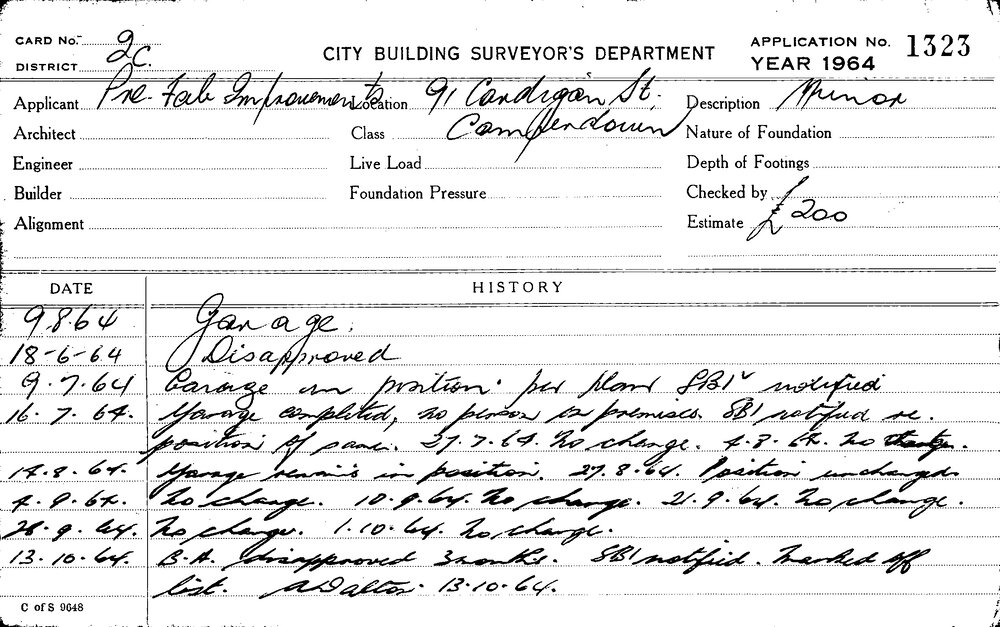 CARD No. 2c. CITY BUILDING SURVEYOR'S DEPARTMENT APPLICATION No. 1323
DISTRICT YEAR 1964
Applicant Pre-Fab Improvements Location 91 Cardigan St. Description Minor
Architect Class Camperdown Nature of Foundation
Engineer Live Load Depth of Footings
Builder Foundation Pressure Checked by
Alignment Estimate £200
DATE HISTORY
9.8.64 Garage.
18-6-64 Disapproved
9.7.64 Garage in position per plan SBI notified
16.7.64. Garage completed, no person in premises. SBI notified re.
position of same. 27.7.64. No change. 4.8.64. No change.
14.8.64. Garage remains in position. 27.8.64. Position unchanged
4.9.64. No change. 10.9.64. No change. 21.9.64. No change.
28.9.64. No change. 1.10.64. No change.
13.10.64. B.A. disapproved 3 months. SBI notified. Marked off
list. ADalton 13.10.64.
C of S 9648